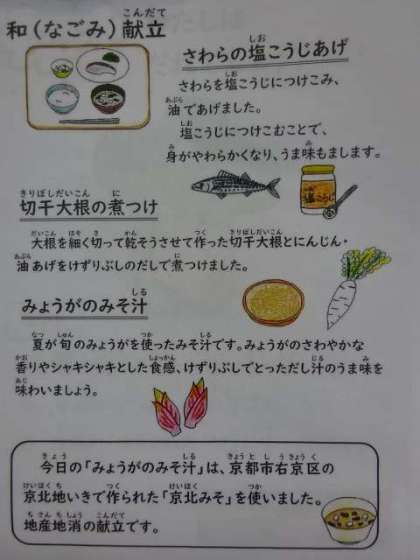 和(なごみ)献立
さわらの塩こうじあげ
さわらを塩こうじにつけこみ、
油であげました。
塩こうじにつけこむことで、
身がやわらかくなり、うま味もまします。
塩こうじ
切干大根の煮つけ
大根を細く切って乾そうさせて作った切干大根とにんじん・
油あげをけずりぶしのだしで煮つけました。
みょうがのみそ汁
夏が旬のみょうがを使ったみそ汁です。みょうがのさわやかな
香りやシャキシャキとした食感、けずりぶしでとっただし汁のうま味を
味わいましょう。
今日の「みょうがのみそ汁」は、京都市右京区の
京北地いきで作られた「京北みそ」を使いました。
地産地消の献立です。